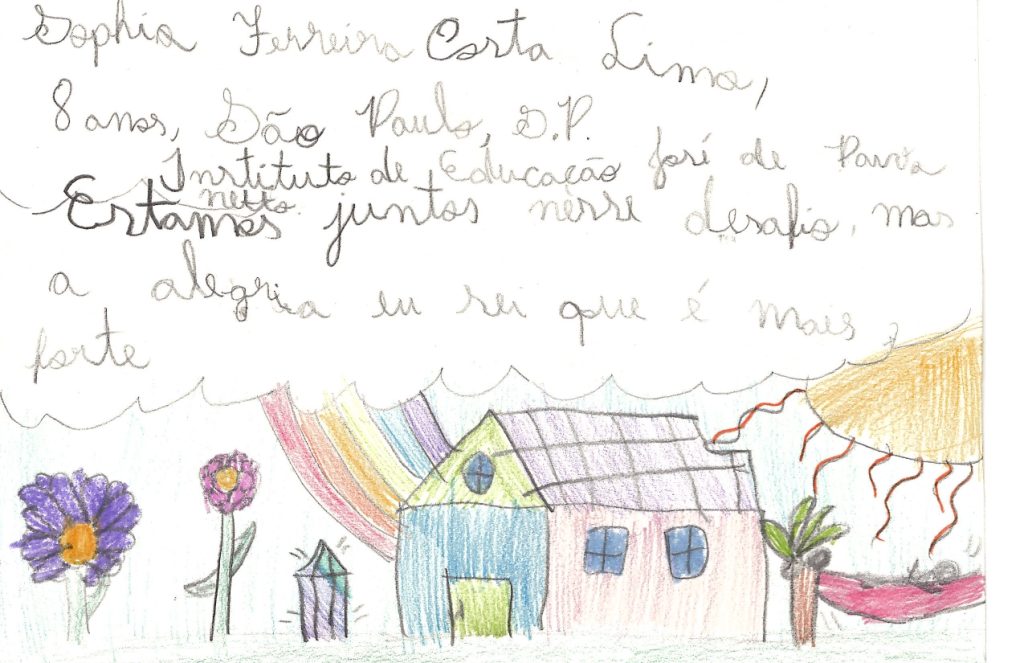 Sophia Ferreira Costa Lima,
8 anos, São Paulo, S.P.
Instituto de Educação José de Paiva
netto.
Estamos juntos nesse desafio, mas
a alegria eu sei que é mais
forte